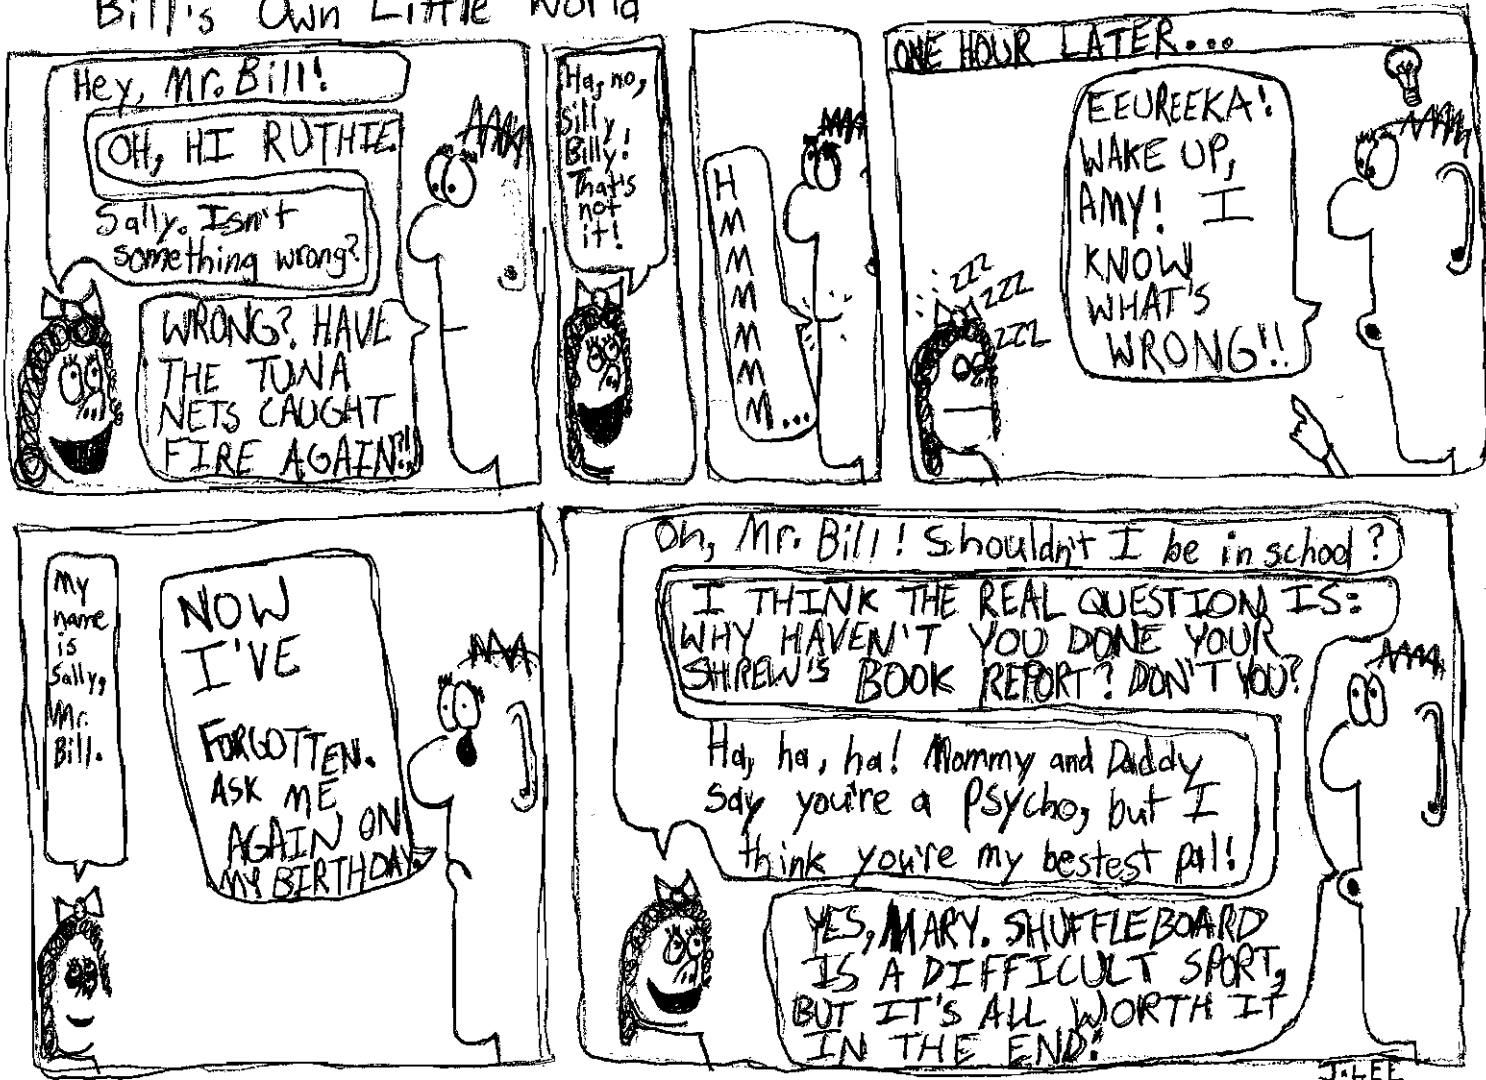 Bill's Own Little World
Hey, Mr. Bill!
OH, HI RUTHIE.
Sally. Isn't
something wrong?
WRONG? HAVE
THE TUNA
NETS CAUGHT
FIRE AGAIN?!
Ha, no,
silly
Billy!
That's
not
it!
H
M
M
M
M
M
M...
ONE HOUR LATER...
EEUREEKA!
WAKE UP,
AMY! I
KNOW
WHAT'S
WRONG!!
ZZZ
ZZZ
ZZZ
My
name
is
Sally,
Mr.
Bill.
NOW
I'VE
FORGOTTEN.
ASK ME
AGAIN ON
MY BIRTHDAY.
Oh, Mr. Bill! Shouldn't I be in school?
I THINK THE REAL QUESTION IS:
WHY HAVEN'T YOU DONE YOUR
SHREW'S BOOK REPORT? DON'T YOU?
Ha, ha, ha! Mommy and Daddy
say you're a psycho, but I
think you're my bestest pal!
YES, MARY. SHUFFLEBOARD
IS A DIFFICULT SPORT,
BUT IT'S ALL WORTH IT
IN THE END.
J.LEE